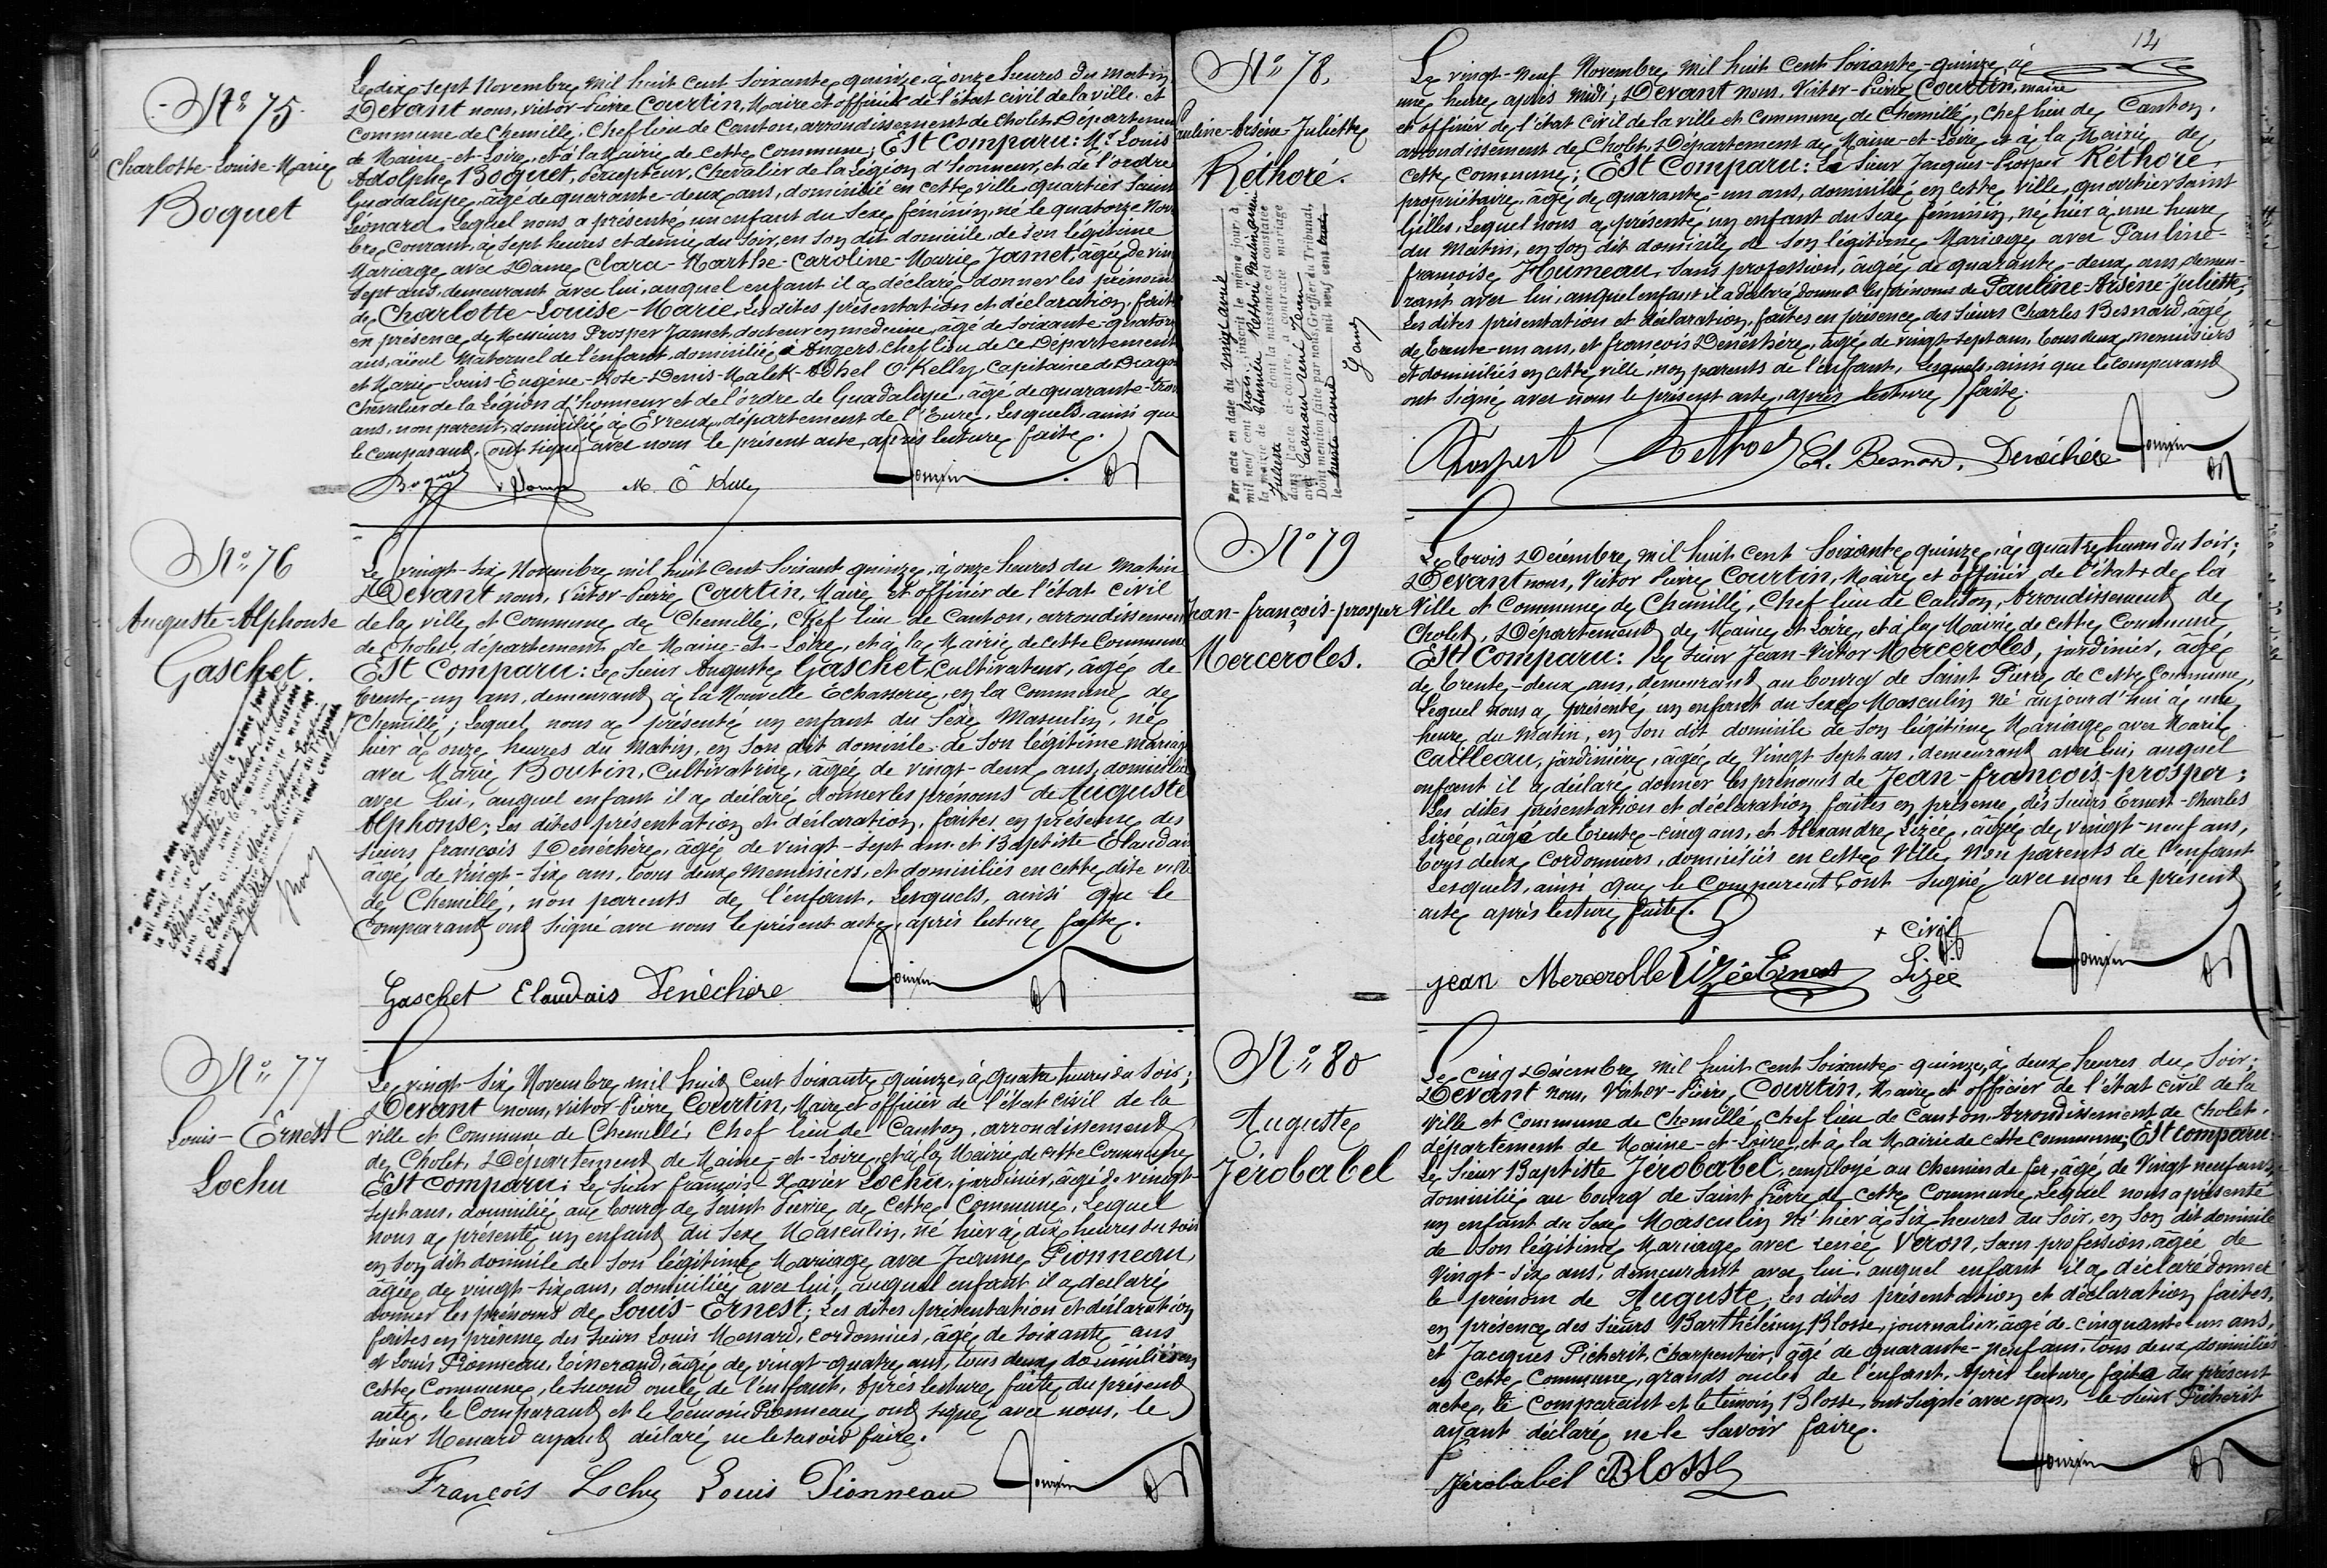 N° 75.
Charlotte-Louise-Marie
Boquet
Le dix-sept Novembre, mil huit cent soixante-quinze, à onze heures du matin
Devant nous, Victor-Pierre Courtin, Maire et officier de l'état civil de la ville et
commune de Chemillé, Chef lieu de Canton, arrondissement de Cholet, Département
de Maine-et-Loire, et à la Mairie de cette commune; Est Comparu: Mr Louis
Adolphe Boquet, percepteur, Chevalier de la Légion d'honneur, et de l'ordre
Guadalupe, âgé de quarante-deux ans, domicilié en cette ville, quartier Saint
Léonard. Lequel nous a présenté un enfant du sexe féminin, né le quatorze Nov
bre, courant, à sept heures et demie du soir, en son dit domicile, de son légitime
Mariage avec Dame Clara-Marthe-Caroline-Marie Jamet, âgée de vin
sept ans, demeurant avec lui, auquel enfant il a déclaré donner les prénoms
de Charlotte-Louise-Marie, Les dites présentation et déclaration, faites
en présence de Messieurs Prosper Jamet, docteur en medecine, âgé de soixante-quatorz
ans, aïeul maternel de l'enfant, domicilié à Angers, chef lieu de ce Département
et Marie-Louis-Eugène-Rose-Denis-Malek-Adhel O'Kelly, Capitaine de Drago
Chevalier de la Légion d'honneur et de l'ordre de Guadalupe, âgé de quarante-trois
ans, non parent, domicilié à Evreux, département de l'Eure, Lesquels, ainsi que
le comparant, ont signé avec nous le présent acte, après lecture faite.
Boquet M. O'Kelly
N° 76
Auguste-Alphonse
Gaschet.
Le vingt-six Novembre, mil huit Cent Soixant quinze, à onze heures du Matin
Devant nous, Victor-Pierre Courtin, Maire et officier de l'état civil
de la ville et Commune de Chemillé, Chef lieu de Canton, arrondissement
de Cholet, département de Maine-et-Loire, et à la Mairie de cette Commune
Est Comparu: Le Sieur Auguste Gaschet, Cultivateur, âgé de
trente-un ans, demeurant à la Nouvelle Echasserie, en la Commune de
Chemillé; Lequel nous a présenté un enfant du Sexe Masculin, né
hier à onze heures du matin, en son dit domicile de son légitime mariage
avec Marie Boutin, Cultivatrice, âgée de vingt-deux ans, domiciliée
avec lui, auquel enfant il a déclaré donner les prénoms de Auguste
Alphonse; Les dites présentation et déclaration, faites en présence des
Sieurs françois Denéchère, âgé de vingt-sept ans, et Baptiste Elaudais
âgé de vingt-six ans, tous deux menuisiers, et domiciliés en cette dite ville
de Chemillé, non parents de l'enfant, Lesquels, ainsi que le
Comparant, ont signé avec nous le présent acte, après lecture faite.
Gaschet Elaudais Denéchère
N° 77
Louis-Ernest
Lochu
Le vingt-Six Novembre, mil huit Cent soixante quinze, à quatre heures du soir;
Devant nous, Victor-Pierre Courtin, Maire et officier de l'état civil de la
ville et Commune de Chemillé, Chef lieu de Canton, arrondissement
de Cholet, Département de Maine-et-Loire, et à la Mairie de cette Commune
Est Comparu: Le Sieur françois-Xavier Lochu, jardinier, âgé de vingt-
sept ans, domicilié au bourg de Saint Pierre de cette Commune, Lequel
nous a présenté un enfant du Sexe Masculin, né hier à dix heures du soir
en son dit domicile de son légitime Mariage avec Jeanne Pionneau,
âgée de vingt-six ans, domiciliée avec lui, auquel enfant il a déclaré
donner les prénoms de Louis-Ernest; Les dites présentation et déclaration
faites en présence des Sieurs Louis Menard, cordonnier, âgé de soixante ans
et Louis Pionneau, tisserand, âgé de vingt-quatre ans, tous deux domiciliés en
cette Commune, le second oncle de l'enfant, Après lecture faite du présent
acte, le Comparant et le témoin Pionneau ont signé avec nous, le
sieur Menard ayant déclaré ne le savoir faire.
François Lochu Louis Pionneau
14
N° 78.
Pauline-Arsène-Juliette
Réthoré.
Par acte en date du
mil neuf cent trois, inscrit le même jour à
la mairie de Chemillé
Juliette dont la naissance est constatée
dans l'acte ci-contre, a contracté mariage
avec
Dont mention faite par nous, Greffier du Tribunal,
le mil neuf cent trois
Le vingt-neuf Novembre, mil huit Cent Soixante-quinze, à
une heure après midi; Devant nous, Victor-Pierre Courtin, maire
et officier de l'état civil de la ville et Commune de Chemillé, chef lieu de Canton,
arrondissement de Cholet, Département de Maine-et-Loire, et à la Mairie de
cette commune; Est Comparu: Le Sieur Jacques-Prosper Réthoré,
propriétaire, âgé de quarante-un ans, domicilié en cette ville, quartier saint
Gilles, Lequel nous a présenté un enfant du sexe féminin, né hier à une heure
du Matin, en son dit domicile de son légitime Mariage avec Pauline-
françoise Humeau, Sans profession, âgée de quarante-deux ans, demeu-
rant avec lui, auquel enfant il a déclaré donner les prénoms de Pauline-Arsène-Juliette;
Les dites présentation et déclaration, faites en présence des Sieurs Charles Besnard, âgé
de trente-un ans, et françois Denéchère, âgé de vingt-sept ans, tous deux menuisiers
et domiciliés en cette ville, non parents de l'enfant, Lesquels, ainsi que le comparant
ont signé avec nous le présent acte, après lecture faite.
Prosper Rethoré Ch. Besnard. Denéchère
N° 79
Jean-françois-prosper
Merceroles.
Le trois Décembre, mil huit cent soixante quinze, à quatre heures du soir;
Devant nous, Victor Pierre Courtin, Maire et officier de l'état + de la
Ville et Commune de Chemillé, Chef lieu de Canton, Arrondissement de
Cholet, Département de Maine et Loire, et à la Mairie de cette Commune
Est Comparu: Le Sieur Jean-Victor Merceroles, jardinier, âgé
de trente-deux ans, demeurant au bourg de Saint Pierre de cette Commune,
Lequel nous a présenté un enfant du sexe Masculin né aujourd'hui à une
heure du matin, en son dit domicile de son légitime Mariage avec Marie
Cailleau, jardinière, âgée de vingt sept ans, demeurant avec lui, auquel
enfant il a déclaré donner les prénoms de Jean-françois-prosper;
Les dites présentation et déclaration faites en présence des Sieurs Ernest-Charles
Lizée, âgé de trente-cinq ans, et Alexandre Lizée, âgée de vingt-neuf ans,
tous deux Cordonniers, domiciliés en cette Ville, Non parents de l'enfant
Lesquels, ainsi que le Comparant, ont signé avec nous le présent
acte, après lecture faite.
+ Civil
jean Mercerolle Lizée Ernest Lizée
N° 80
Auguste
Jérobabel
Le cinq Décembre, mil huit cent soixante-quinze, à deux heures du Soir;
Devant nous, Victor-Pierre Courtin, Maire et officier de l'état civil de la
Ville et Commune de Chemillé, Chef lieu de Canton, Arrondissement de Cholet,
département de Maine-et-Loire, et à la Mairie de cette Commune; Est comparu:
Le Sieur Baptiste Jérobabel, employé au chemin de fer, âgé de Vingt neuf ans,
domicilié au bourg de Saint Pierre de cette Commune, Lequel nous a présenté
un enfant du Sexe Masculin né hier à Six heures du Soir, en son dit domicile
de son légitime Mariage avec Renée Veron, Sans profession, âgée de
Vingt-six ans, demeurant avec lui, auquel enfant il a déclaré donner
le prénom de Auguste; Les dites présentation et déclaration faites,
en présence des Sieurs Barthélemy Blosse, journalier, âgé de cinquante-un ans,
et Jacques Picherit, Charpentier, âgé de quarante-neuf ans, tous deux domiciliés
en cette Commune, grands oncles de l'enfant, Après lecture faite du présent
acte, le Comparant et le témoin Blosse, ont signé avec nous, le Sieur Picherit
ayant déclaré ne le savoir faire.
Jérobabel Blosse